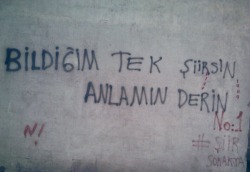 BİLDİĞİM TEK ŞİİRSİN,
ANLAMIN DERİN
No:1
N!
# ŞİİR
SOKAKTA